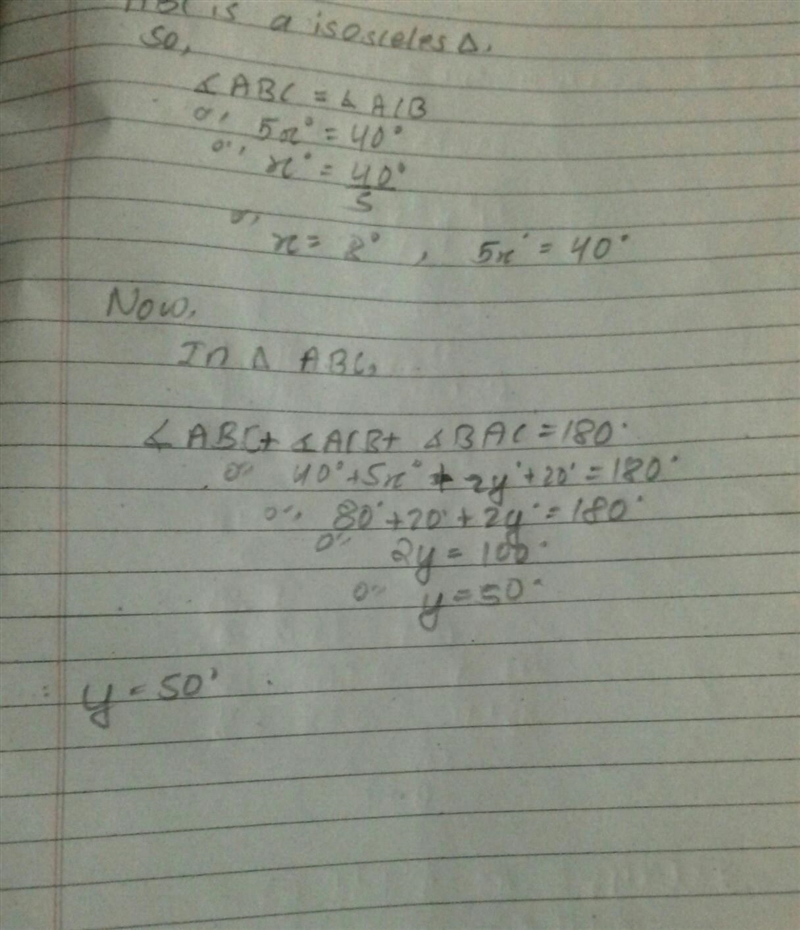 ABC is a isosceles Δ.
So,
∡ABC = ∡ACB
or, 5x° = 40°
or, x° = 40°/5
or, x = 8° , 5x° = 40°
Now.
In Δ ABC,
∡ABC + ∡ACB + ∡BAC = 180°
or 40° + 5x° + 2y° + 20° = 180°
or, 80° + 20° + 2y° = 180°
or 2y = 100°
or y = 50°
∴ y = 50°.